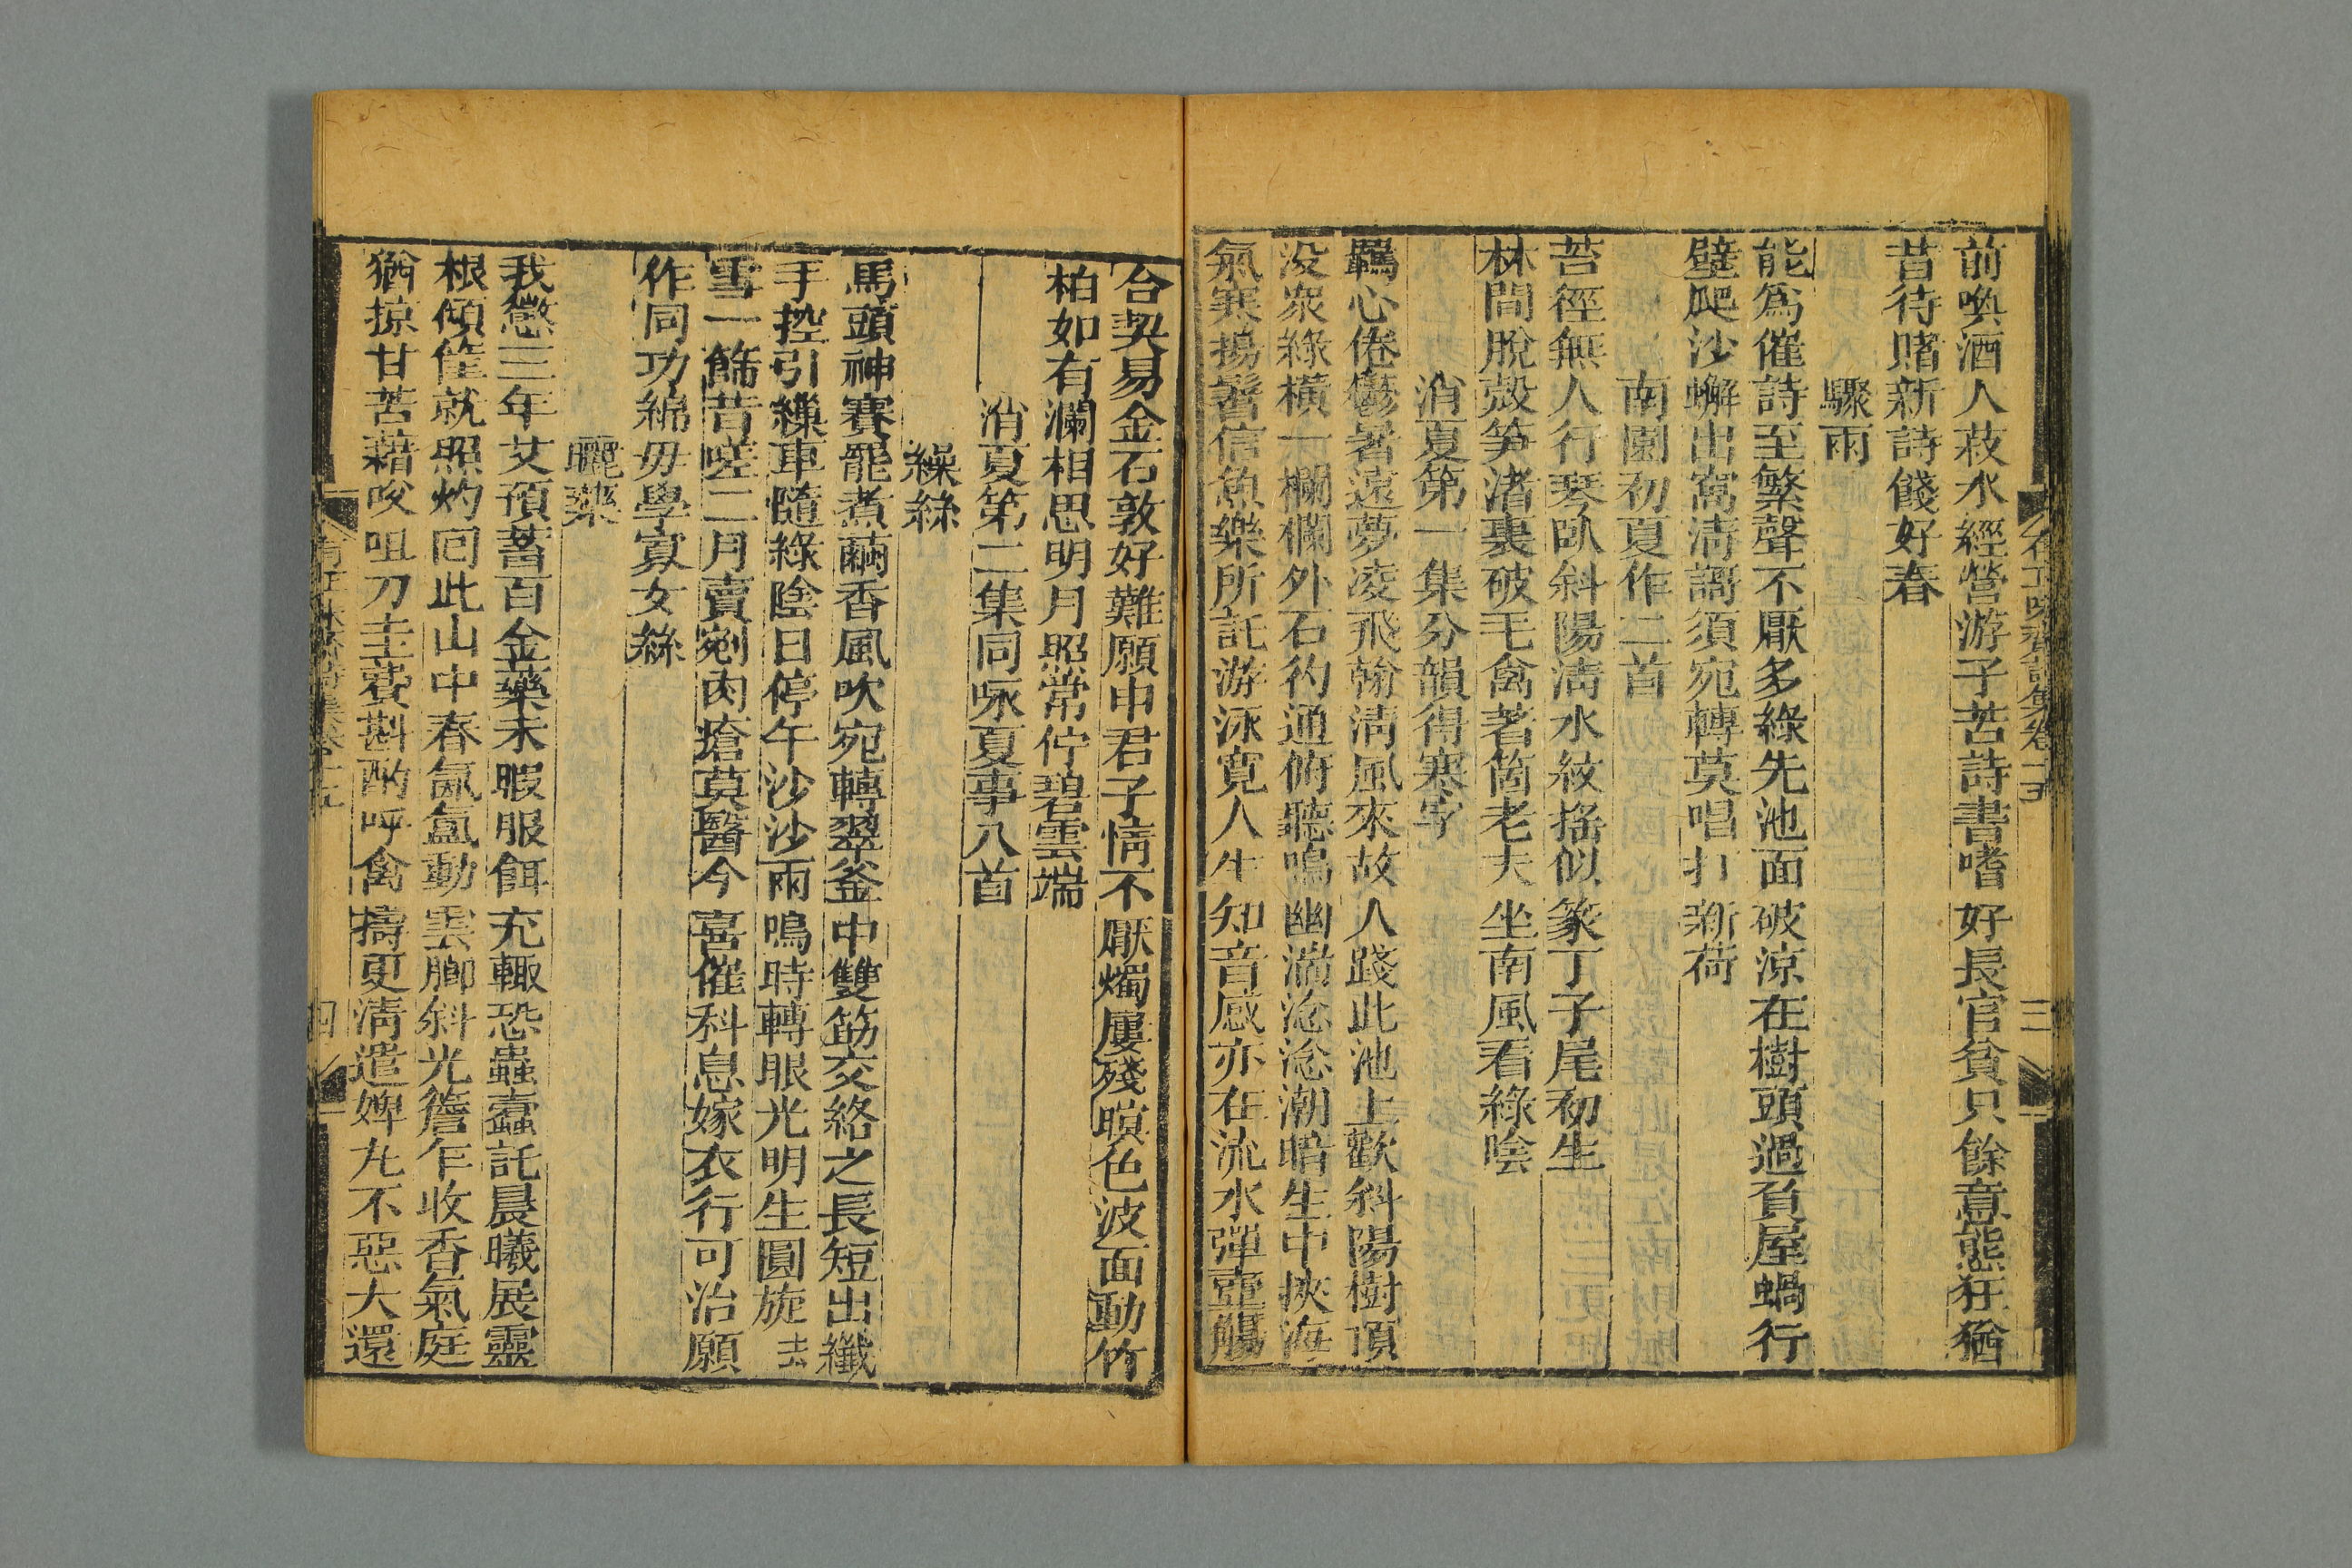 前喚酒人菽水經營游子苦詩書嗜好長官貧只餘意態狂猶
昔待賭新詩餞好春
驟雨
能爲催詩至繁聲不厭多綠先池面破涼在樹頭過負屋蝸行
壁爬沙蠏出窩淸謌須宛轉莫唱打新荷
南園初夏作二首
苔徑無人行琴臥斜陽淸水紋搖似篆丁子尾初生
林間脫殼笋渚裏破毛禽著箇老夫坐南風看綠陰
消夏第一集分韻得寒字
羈心倦鬱暑遠夢凌飛翰淸風來故人踐此池上歡斜陽樹頂
没衆綠橫一欄欄外石彴通俯聽鳴幽湍淰淰潮暗生中挾海
氣寒揚鬐信魚樂所託游泳寬人生知音感亦在流水彈壺觴
台契易金石敦好難願申君子情不厭燭屢殘暝色波面動竹
柏如有瀾相思明月照常佇碧雲端
消夏第二集同咏夏事八首
繰絲
馬頭神賽罷煮繭香風吹宛轉翠釜中雙筯交絡之長短出纖
手控引繅車隨綠陰日停午沙沙雨鳴時轉眼光明生圓旋去
雪一篩昔嗟二月賣剜肉瘡莫醫今喜催科息嫁衣行可治願
作同功綿毋學寡女絲
曬藥
我憊三年艾預蓄百金藥未暇服餌充輒恐蟲蠹託晨曦展靈
根傾筐就照灼囘此山中春氤氳動雲腳斜光簷乍收香氣庭
猶掠甘苦藉㕮咀刀圭費斟酌呼禽擣更淸遣婢丸不惡大還
有正味齋詩集卷十五
三
四